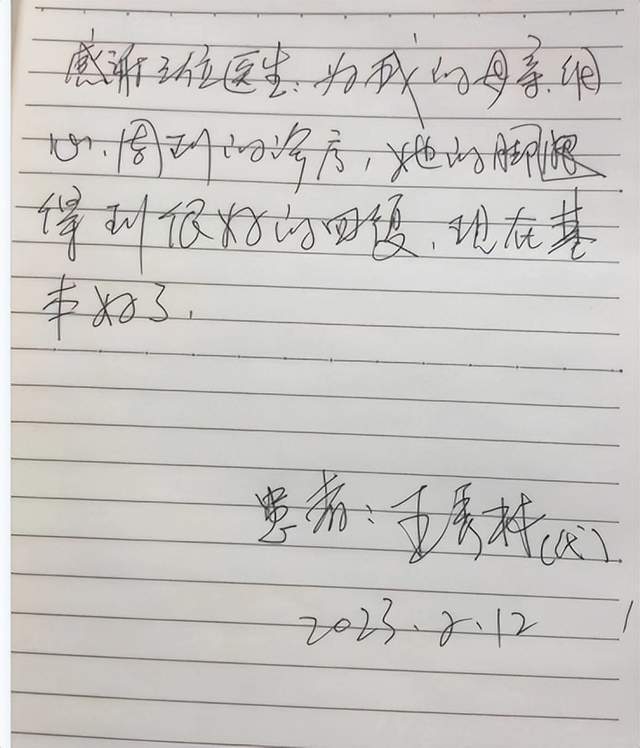 感谢三位医生:为我的母亲.细
心.周到的诊疗,她的脚腿
得到很好的回复.现在基
本好了.
患者:王秀村(代)
2023.2.12